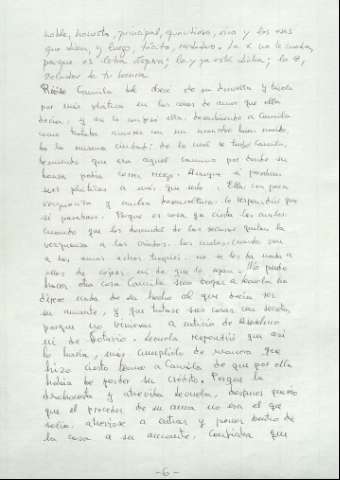 noble, honesto, principal, quantioso, rico y las eses
que dicen, y luego, tácito, verdadero. La x no le cuadra,
porque es letra áspera; la y ya está dicha; la z,
zelador de tu honra.
Rióse Camila del abecé de su doncella y túvola
por más plática en las cosas de amor que ella
decía, y así lo confesó ella, descubriendo a Camila
como trataba amores con un mancebo bien nacido,
de la misma ciudad; de lo cual se turbó Camila,
temiendo que era aquel camino por donde su
honra podía correr riesgo. si pasaban
sus pláticas a más que serlo. Ella con poca
vergüenza y mucha desenvoltura le respondió que
sí pasaban. Porque es cosa ya cierta que los
descuidos de las señoras quitan la
vergüenza a las criadas, las cuales, cuando ven
a las amas echar traspiés, no se les da nada a
ellas de cojear, ni de que lo sepan. No pudo
hacer otra cosa Camila sino rogar a Leonela no
dijese nada de su hecho al que decía ser
su amante, y que tratase sus cosas con secreto,
porque no viniesen a noticia de Anselmo
ni de Lotario. Leonela respondió que así
lo haría, mas cumpliólo de manera que
hizo cierto el temor a Camila de que por ella
había de perder su crédito. Porque la
deshonesta y atrevida Leonela, después que vio
que el proceder de su ama no era el que
solía, atrevióse a entrar y poner dentro de
la casa a su amante, confiada que
-6-